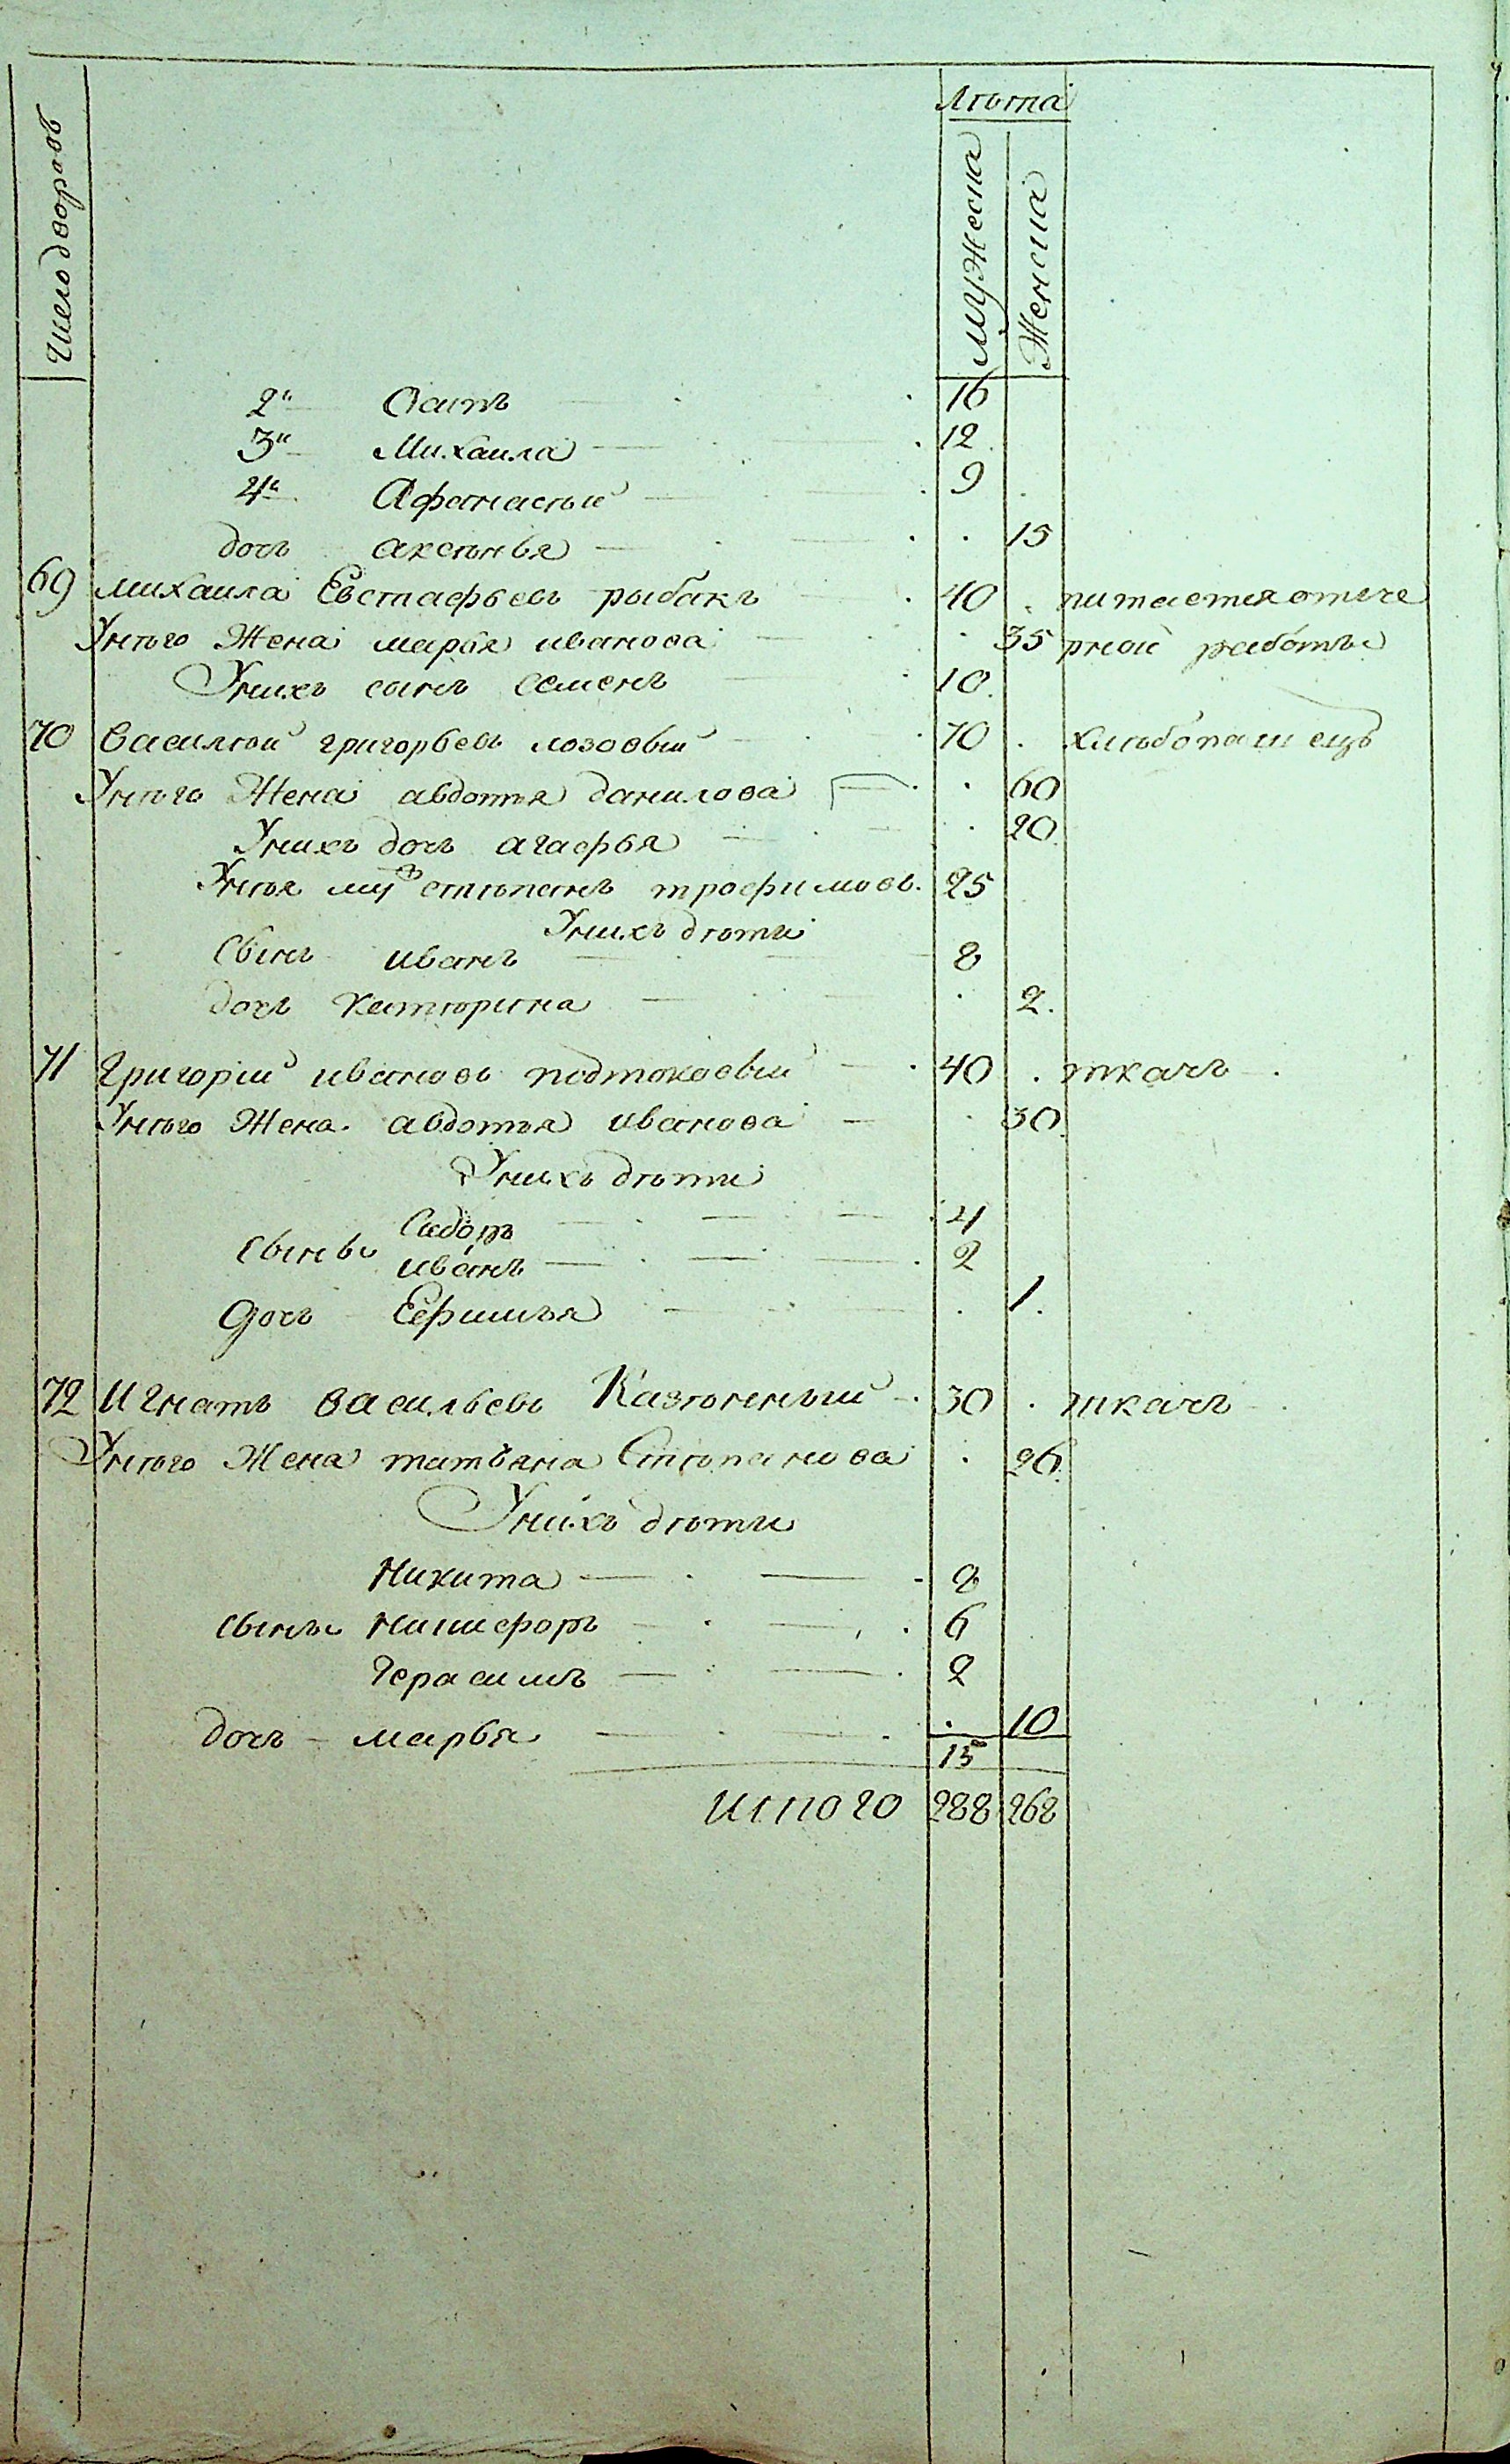 Лѣта
Число дворовъ
мужеска
Женска
2й Осипъ 16
3й Михаила 12
4й Афанасѣй 9
дочь аксѣнья 15
69 михаила Евстафьевъ рыбакъ 40 питается отъ че
Унѣго Жена марья иванова 35 рной работы
Унихъ сынъ семенъ 10
70 василѣй григорьевъ лозовый 70 хлѣбопашецъ
Унѣго Жена авдотья данилова 60
Унихъ дочь агафья 20
Унѣя муж стѣпанъ трофимовъ 25
Унихъ дѣти
Сынъ иванъ 8
дочь катюрина 2
71 григорій ивановъ подтоковый 40 ткачъ
Унѣго Жена авдотья иванова 30
Унихъ дѣти
Сидоръ 4
Сыны иванъ 2
Дочь Ефимья 1
72 Игнатъ васильевъ Казѣнный 30 ткачъ
Унѣго Жена татьяна Стѣпанова 26
Унихъ дѣти
Никита 8
Сыны Никифоръ 6
Герасимъ 2
дочь марья 10
15
Итого 288 268